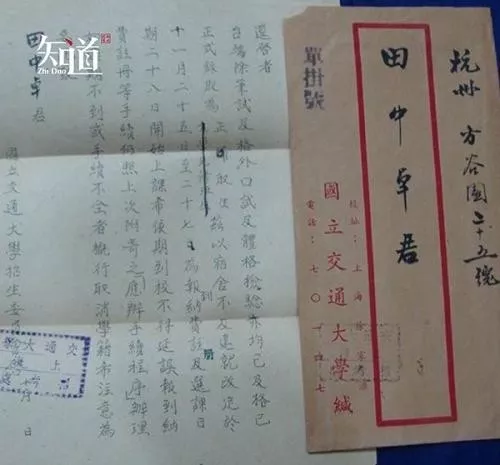 知道
Zhi Dao
逕啓者
台端除筆試及格外口試及體格檢驗亦均已及格已
正式錄取為正取生茲以宿舍不及遷就改定於
十一月二十五日至二十七日為報到納費註冊及選課日
期二十八日開始上課希依期到校不得延誤報到納
費註冊等手續仍照上次附寄之應辦手續程序辦理
不到或手續不全者概行取消學籍希注意為
田中卓君
國立交通大學招生委
日
交通大學
上海
單掛號
杭州 方谷園二十五號
田中卓君
國立交通大學緘
校址：上海徐家
電話：七〇一四七